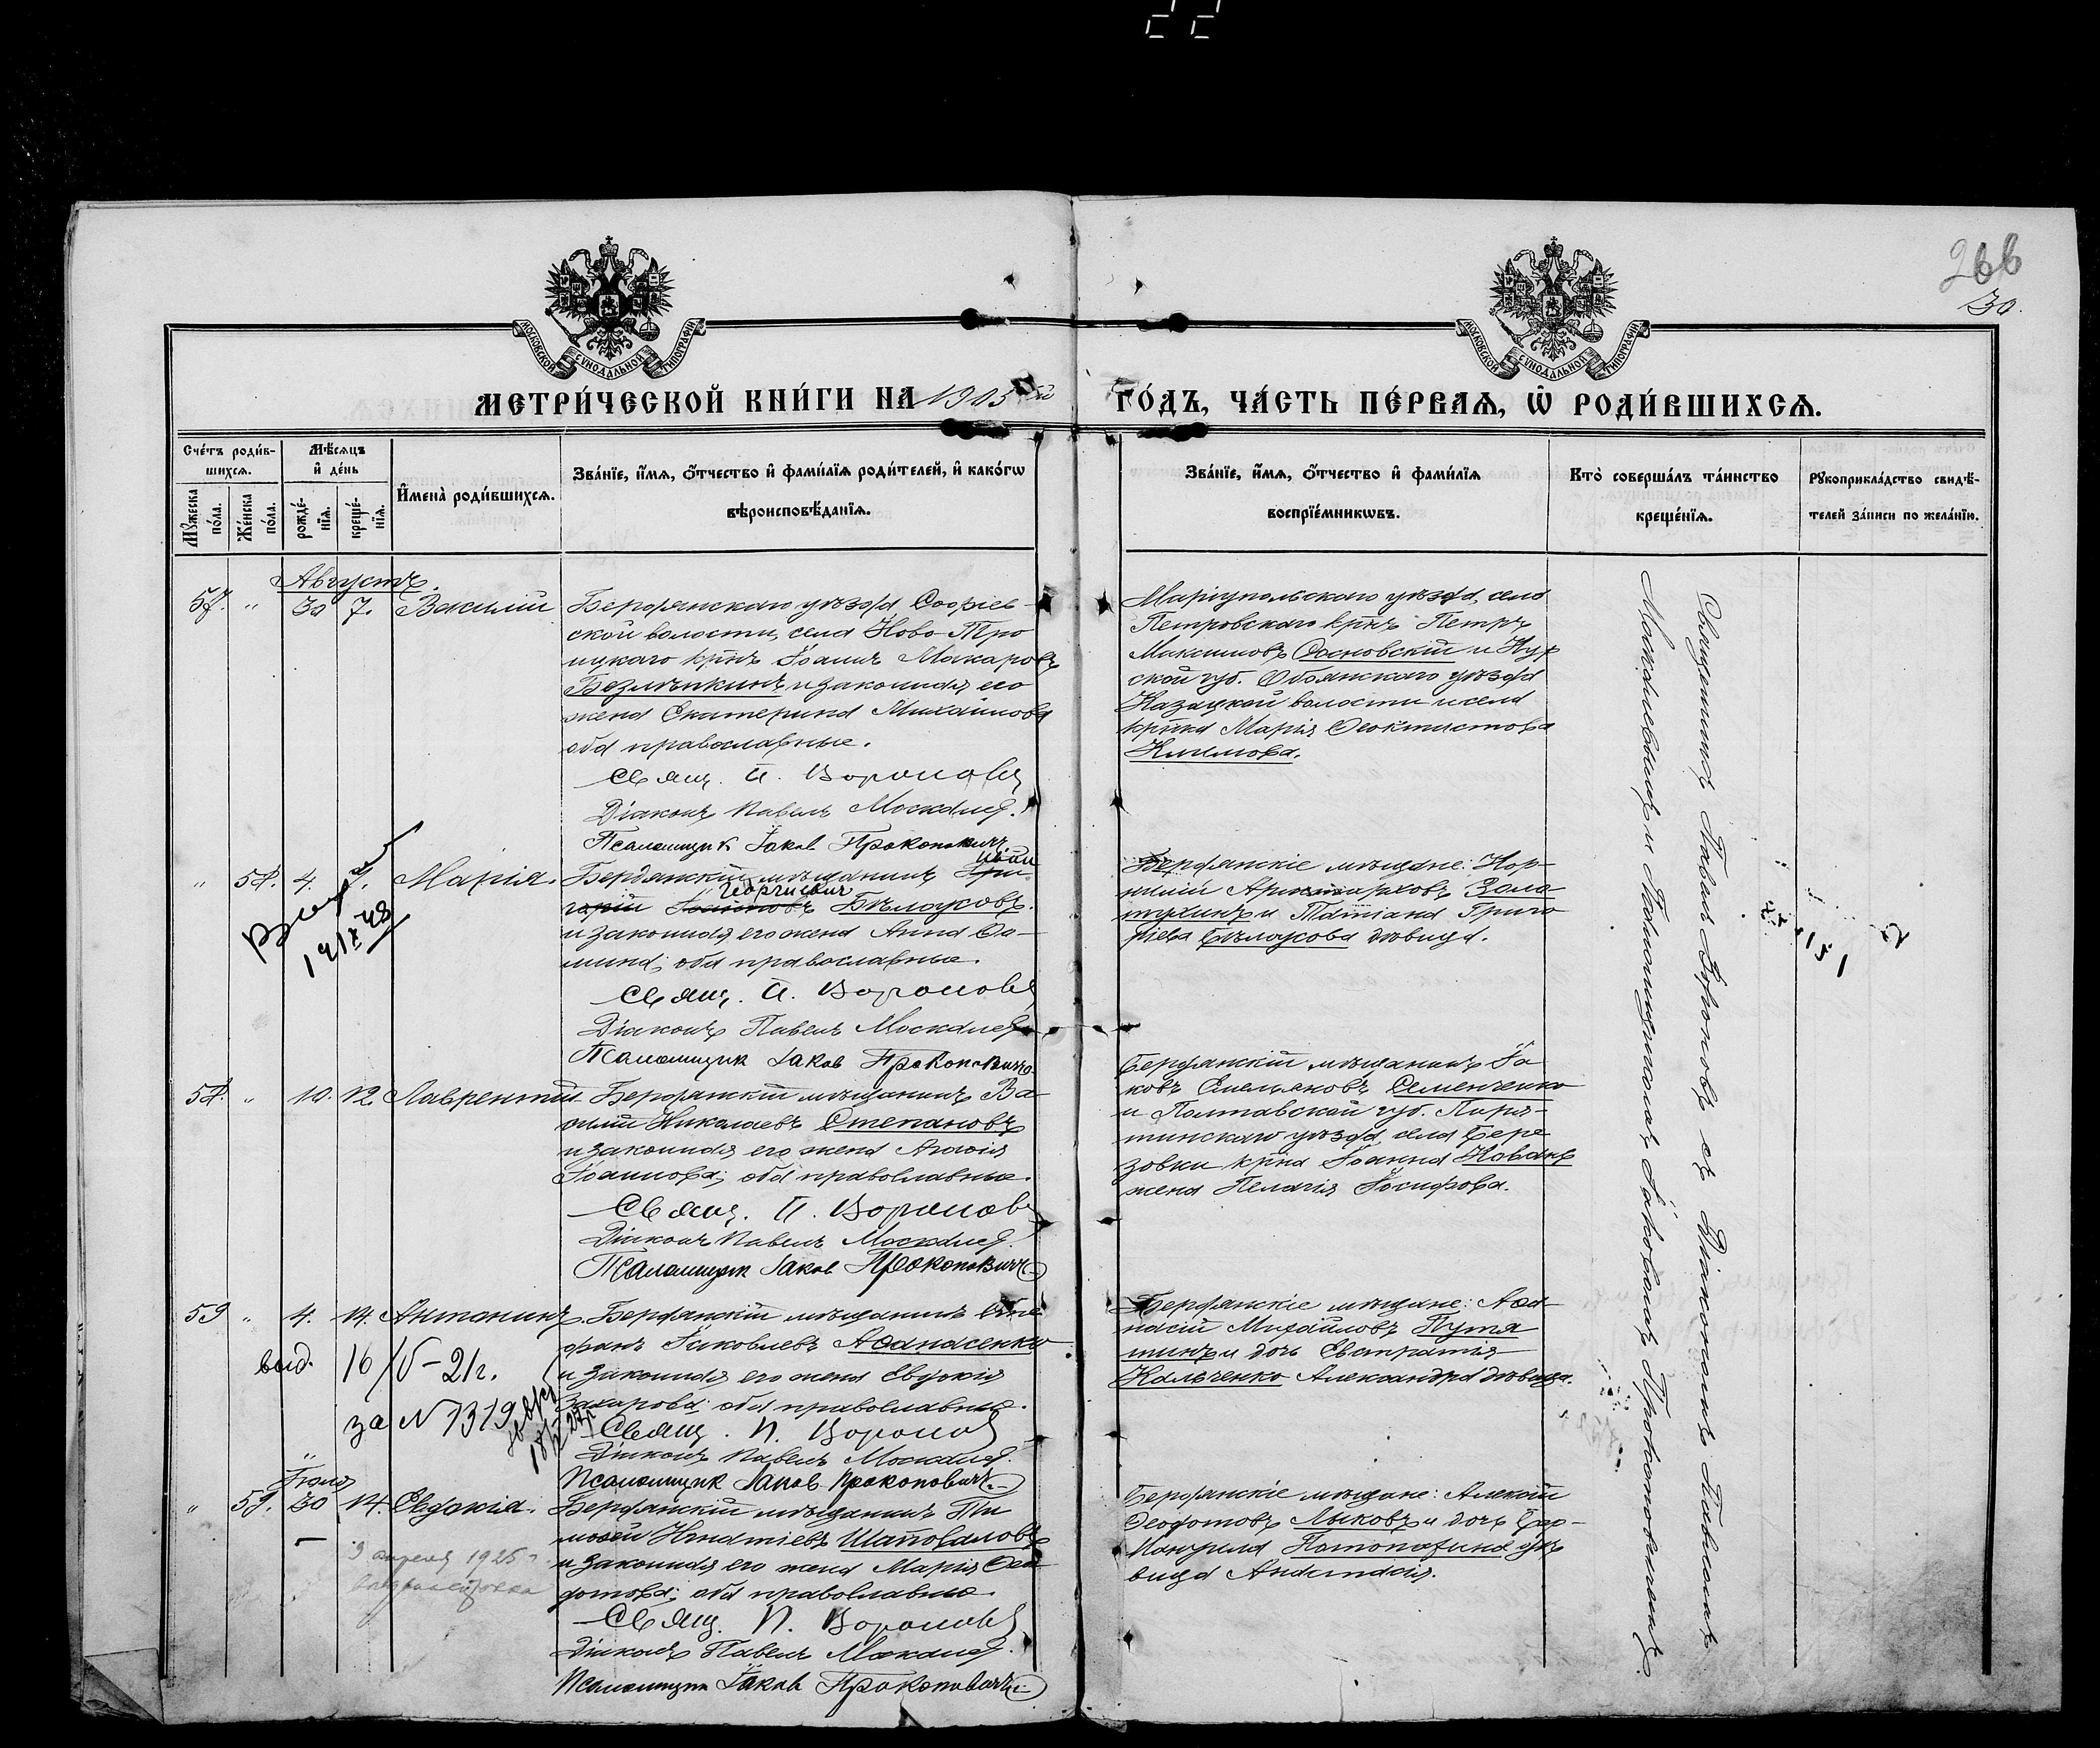 22
266
30.
МОСКОВСКОЙ СУНОДАЛЬНОЙ ТИПОГРАФІИ
МОСКОВСКОЙ СУНОДАЛЬНОЙ ТИПОГРАФІИ
МЕТРИ́ЧЕСКОЙ КНИ́ГИ НА 1905 ГО́ДЪ, ЧА́СТЬ ПЕ́РВАѦ, Ѡ҆ РОДИ́ВШИХСѦ.
Сче́тъ роди́в-
шихсѧ.
Мꙋ́жеска по́ла.
Же́нска по́ла.
Мѣ́сѧцъ
и҆ де́нь
рожде́-
нїѧ.
креще́-
нїѧ.
И҆мена̀ роди́вшихсѧ.
Зва́нїе, и҆́мѧ, ѻ҆́тчество и҆ фами́лїѧ роди́телей, и҆ како́гѡ
вѣроисповѣ́данїѧ.
Зва́нїе, и҆́мѧ, ѻ҆́тчество и҆ фами́лїѧ
воспрїе́мникѡвъ.
Кто̀ соверша́лъ та́инство
креще́нїѧ.
Рꙋкоприкла́дство свидѣ́-
телей за́писи по жела́нїю.
Августъ.
57. " 30 7. Василій
Бердянскаго уѣзда, Софіев-
ской волости, села Ново-Тро
ицкаго крнъ Іоаннъ Макаровъ
и законная его
жена Екатерина Михайлова
оба православные.
Свящ. П. Вороновъ
Діаконъ Павелъ Москалевъ.
Псаломщикъ Іаковъ Прокоповичъ
Маріупольскаго уѣзда, села
Петровскаго крнъ Петръ
Максимовъ Сосновскій и Кур
ской губ. Обоянскаго уѣзда
Казацкой волости и села
крнка Марія Феоктистова
" 58. 4. 7. Марія.
Бердянскій мѣщанинъ Гри
горій Георгиевич Бѣлоусовъ.
и законная его жена Анна Фо-
мина; оба православные.
Свящ. П. Вороновъ
Діаконъ Павелъ Москалевъ
Псаломщикъ Іаковъ Прокоповичъ
Бердянскіе мѣщане: Кор-
нилій Аристарховъ Золо
тухинъ и Татіана Григо
ріева Бѣлоусова дѣвица.
58. " 10. 12. Лаврентій
Бердянскій мѣщанинъ Ва
силій Николаевъ Степановъ
и законная его жена Агафія
Іоаннова; оба православные.
Свящ. П. Вороновъ
Діаконъ Павелъ Москалевъ.
Псаломщикъ Іаковъ Прокоповичъ
Бердянскій мѣщанинъ Іа
ковъ Емельяновъ Семенченко
и Полтавской губ. Пиря-
тинскаго уѣзда села Бере
зовки крна Іоанна Коваль
жена Пелагія Іосифова.
59 " 4. 14. Антонинъ
выд. 16/V-21г.
за N 1319
Бердянскій мѣщанинъ Сте
фанъ Іаковлевъ Афанасенко
и законная его жена Евдокія
Захарова; оба православные.
Свящ. П. Вороновъ
Діаконъ Павелъ Москалевъ.
Псаломщикъ Іаковъ Прокоповичъ
Бердянскіе мѣщане: Афа
насій Михайловъ Путя
тинъ и дочь Евстратія
Кальченко Александра дѣвица.
Іюля
" 59. 30 14. Евдокія.
9 апреля 1925 г.
Бердянскій мѣщанинъ Ти
мофей Игнатіевъ Шаповаловъ
и законная его жена Марія Фео
дотова; оба православные.
Свящ. П. Вороновъ
Діаконъ Павелъ Москалевъ.
Псаломщикъ Іаковъ Прокоповичъ
Бердянскіе мѣщане: Алексій
Феодотовъ Лыковъ и дочь
дѣ
вица Анастасія.
Священникъ Павелъ Вороновъ съ Діакономъ Павломъ
Москалевымъ и Псаломщикомъ Іаковомъ Прокоповичемъ.